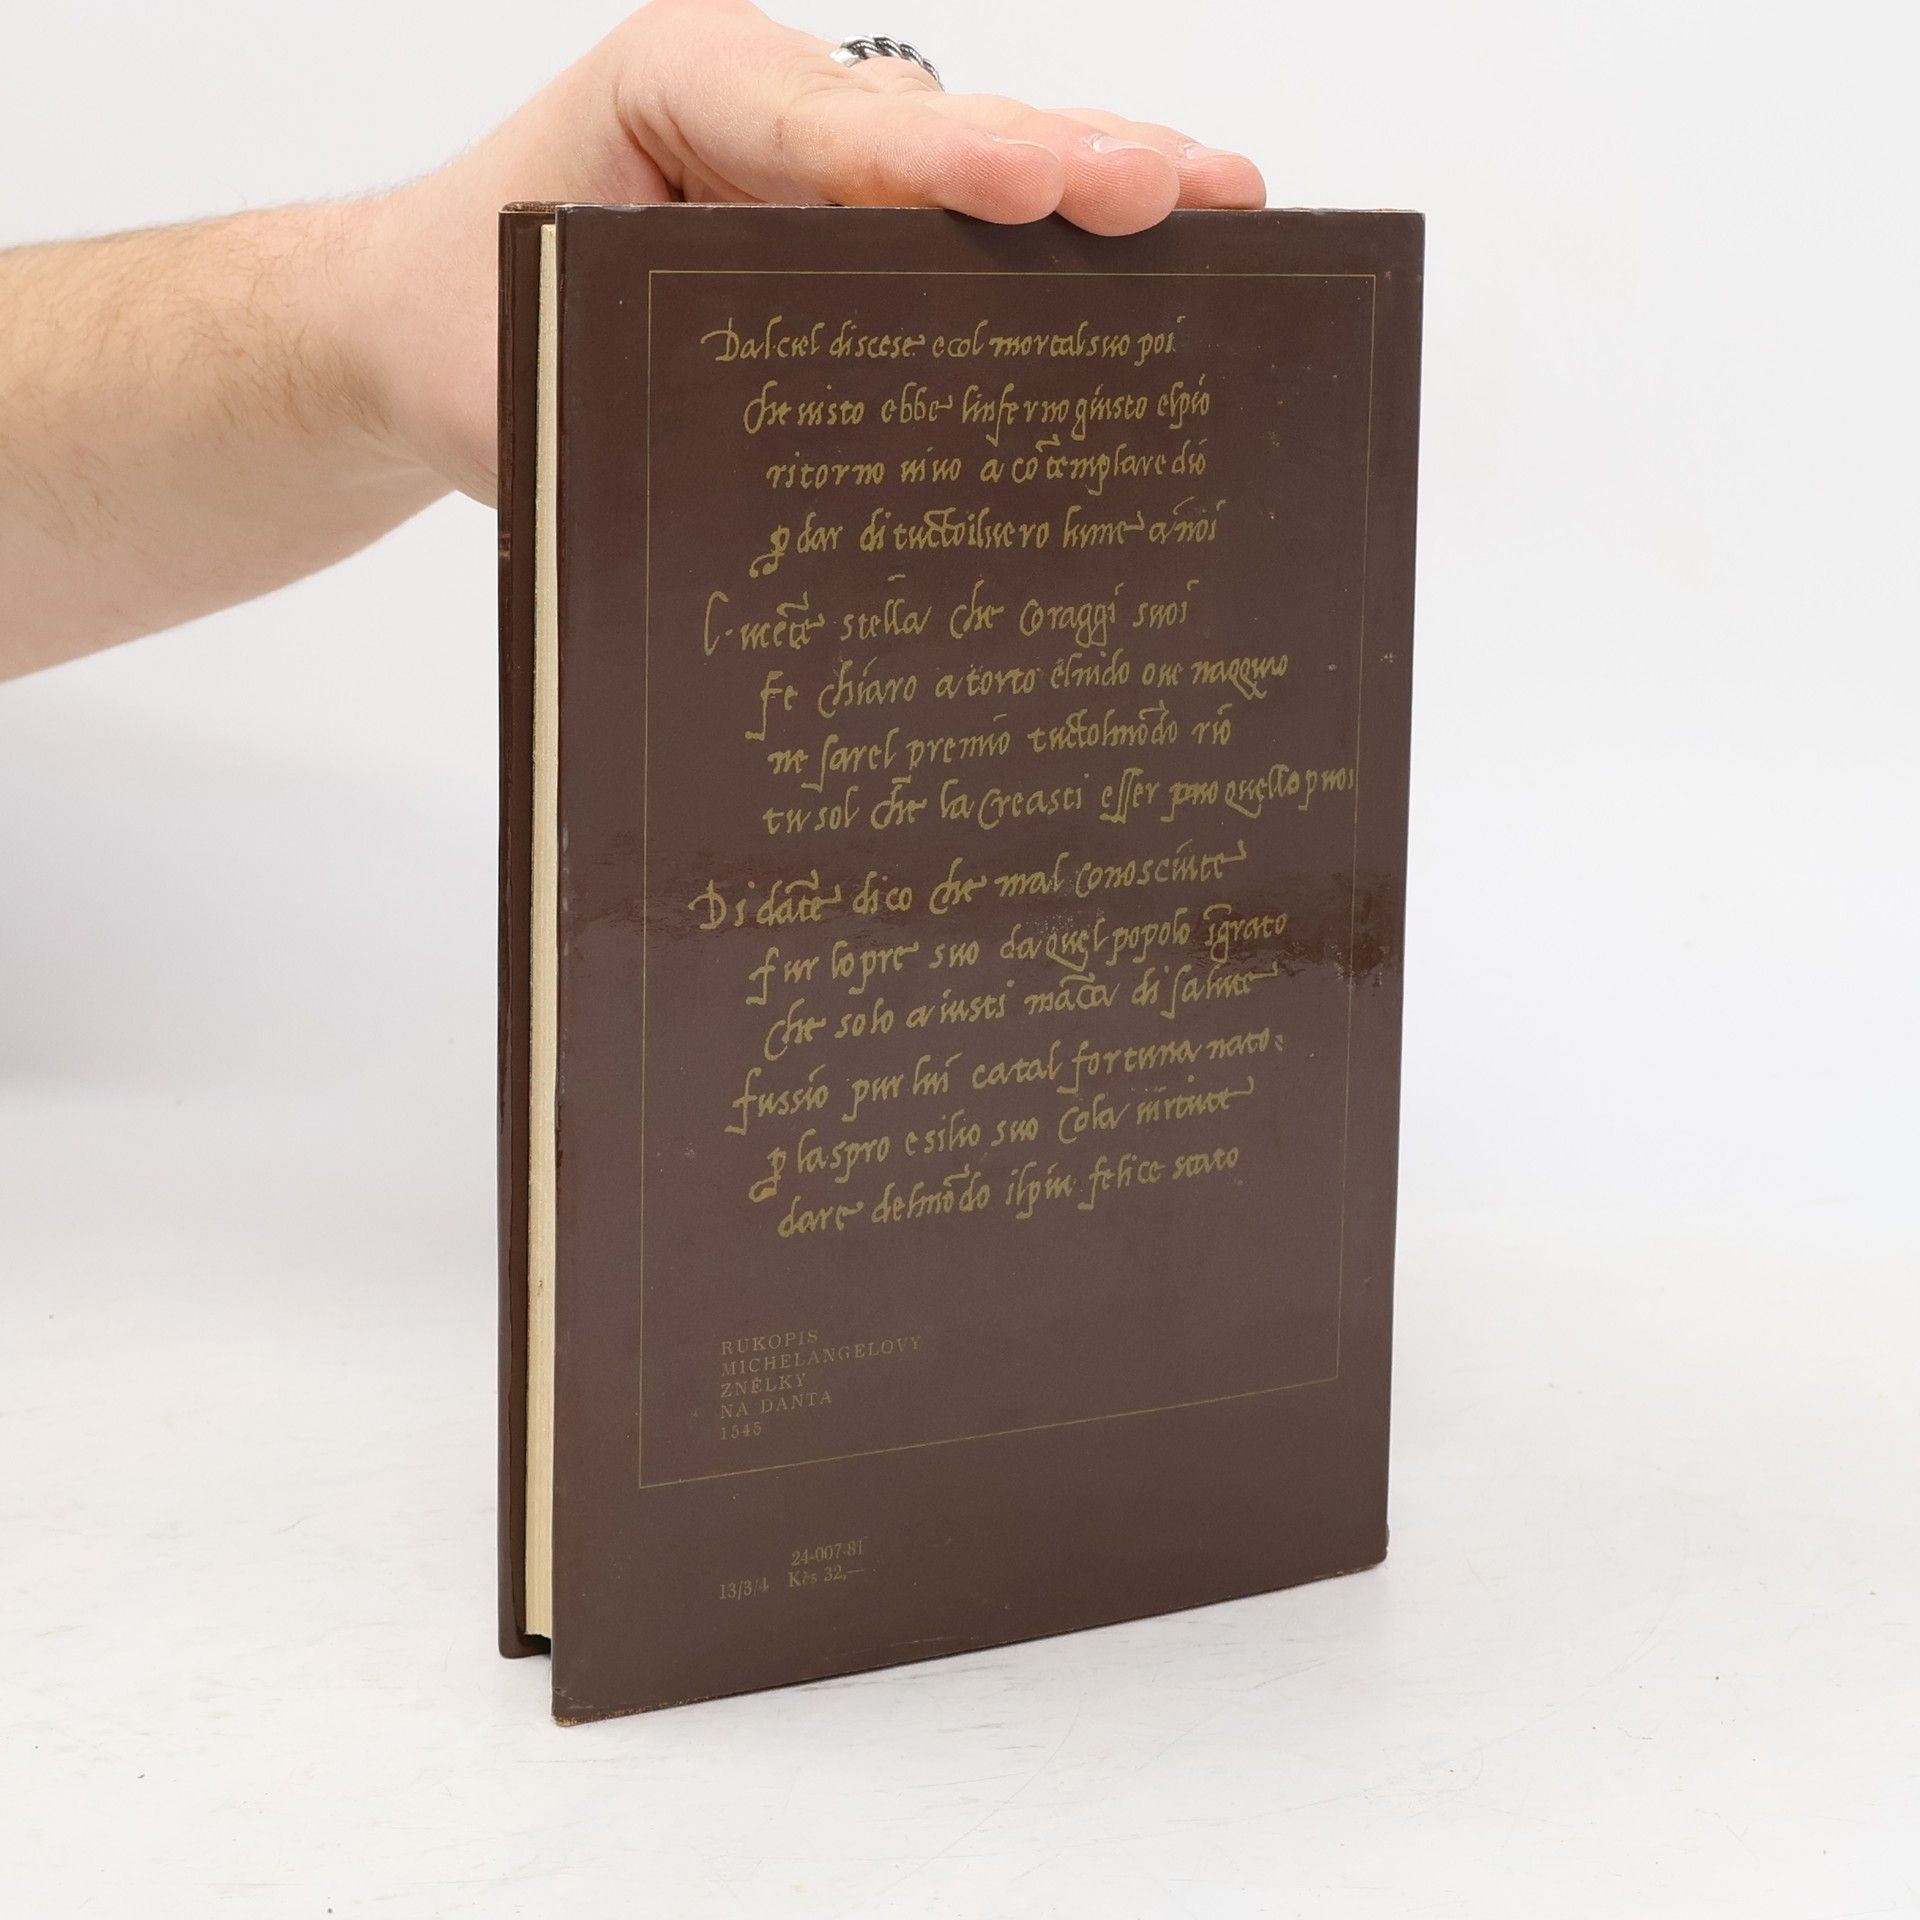 Dal ciel discese e col mortal suo poi
che uisto ebbe linferno giusto elpio
ritorno uiuo a cōtemplare dio
ꝑ dar di tuttoiluero lume a noi
Lucēte stella che co raggi suoi
fe chiaro a torto elnido oue nacqu'io
ne sarel premio tuttolmōdo rio
tu sol che la creasti esser puo quello puoi
Di dāte dico che mal conosciute
fur lopre suo da quel popolo īgrato
che solo a iusti māca di salute
fussio pur lui catal fortuna nato:
ꝑ laspro esilio suo cola uirtute
dare delmōdo ilpiu felice stato
RUKOPIS
MICHELANGELOVY
ZNĚLKY
NA DANTA
1545
24-007-81
13/3/4 Kčs 32,—